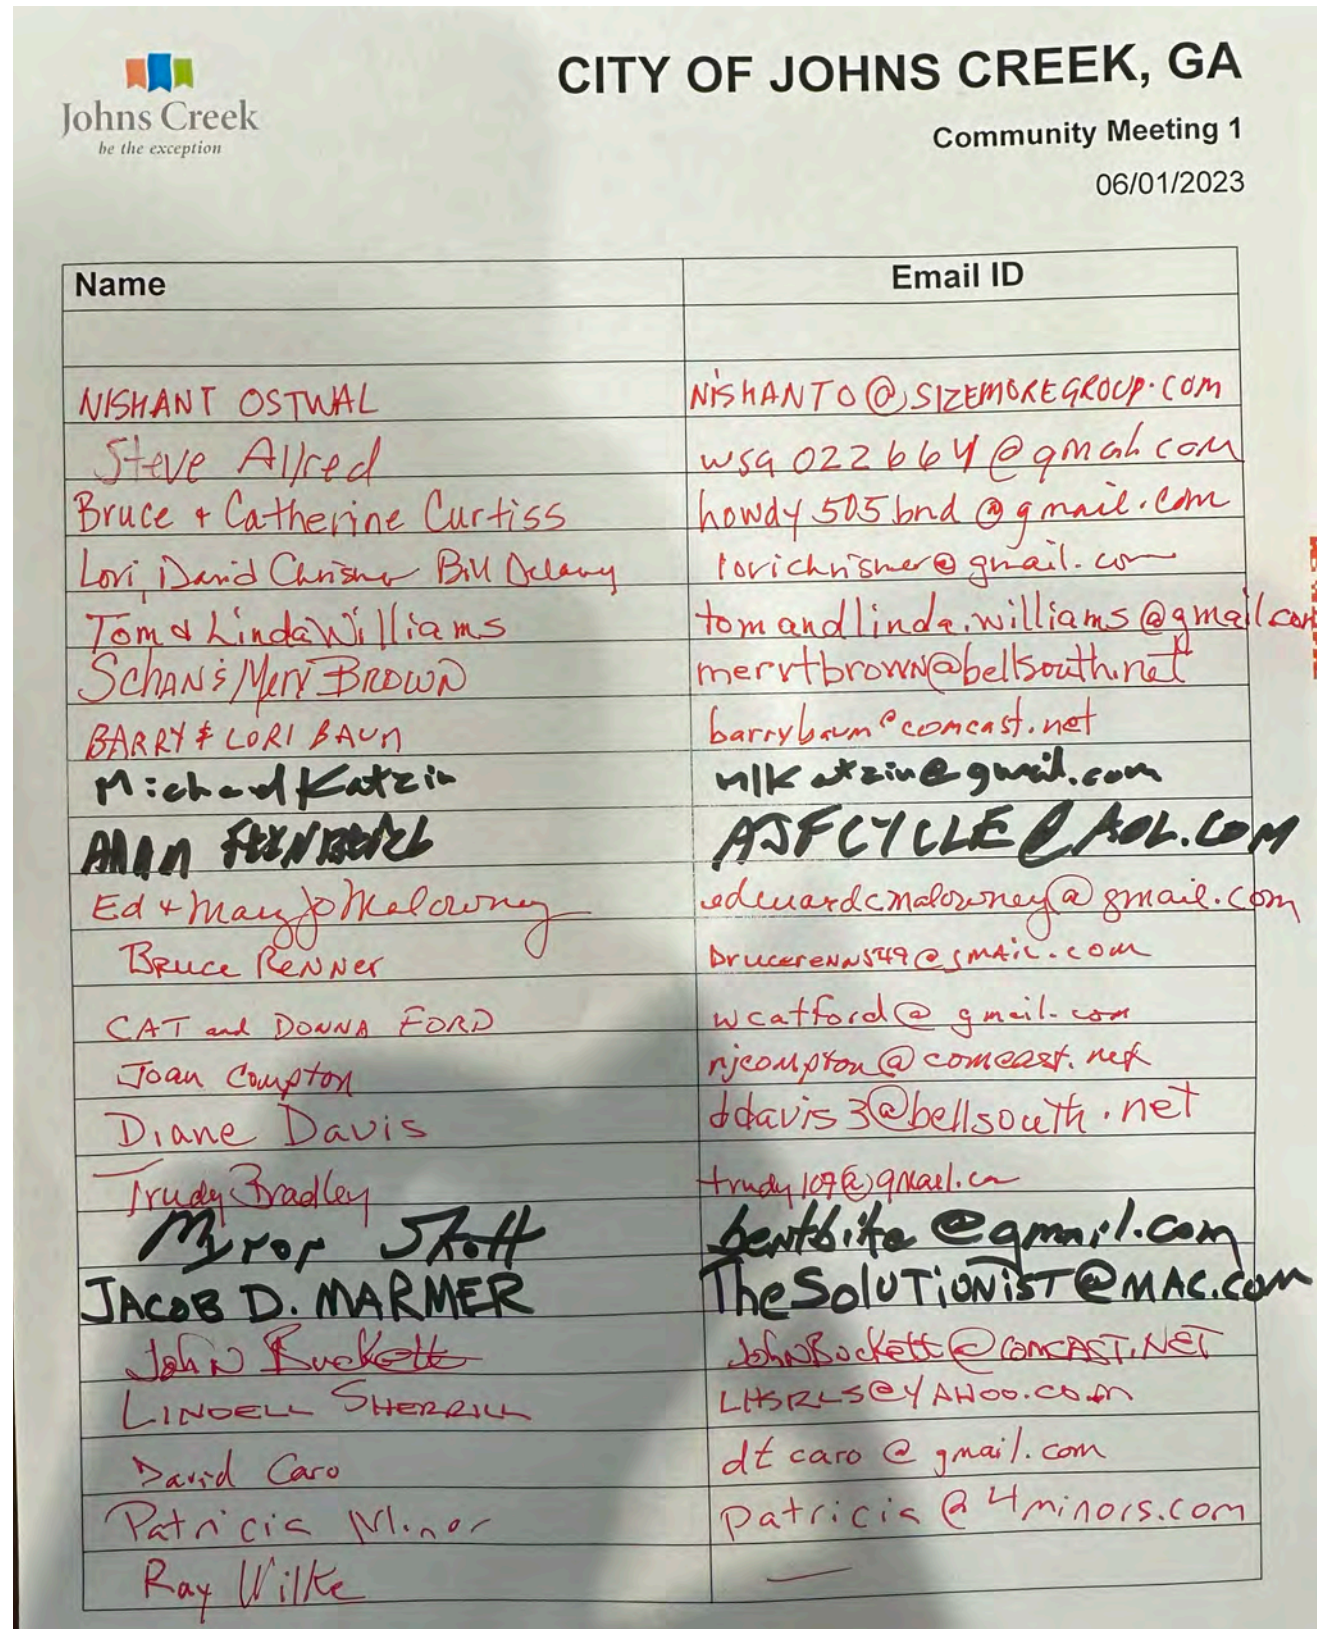 Johns Creek
be the exception
CITY OF JOHNS CREEK, GA
Community Meeting 1
06/01/2023
Name Email ID
NISHANT OSTWAL NISHANTO@SIZEMOREGROUP.COM
Steve Allred wsa022664@gmail.com
Bruce + Catherine Curtiss howdy505bnd@gmail.com
Lori, David Chrisner Bill Delany lorichrisner@gmail.com
Tom & Linda Williams tomandlinda.williams@gmail.com
Merv BROWN mervtbrown@bellsouth.net
BARRY & LORI BAUM barrybaum@comcast.net
Michael Katzin mlkatzin@gmail.com
Alan AJFCYCLE@AOL.COM
Ed + Mary Jo Malowney edwardcmalowney@gmail.com
Bruce Renner brucerenn549@gmail.com
CAT and DONNA FORD wcatford@gmail.com
Joan Compton njcompton@comcast.net
Diane Davis ddavis3@bellsouth.net
Trudy Bradley trudy107@gmail.com
Myron bentbike@gmail.com
JACOB D. MARMER TheSoluTioNisT@MAC.com
John Buckett JohnBuckett@COMCAST.NET
LINDELL SHERRILL LHSRLS@YAHOO.COM
David Caro dtcaro@gmail.com
Patricia Minor patricia@4minors.com
Ray Wilke —